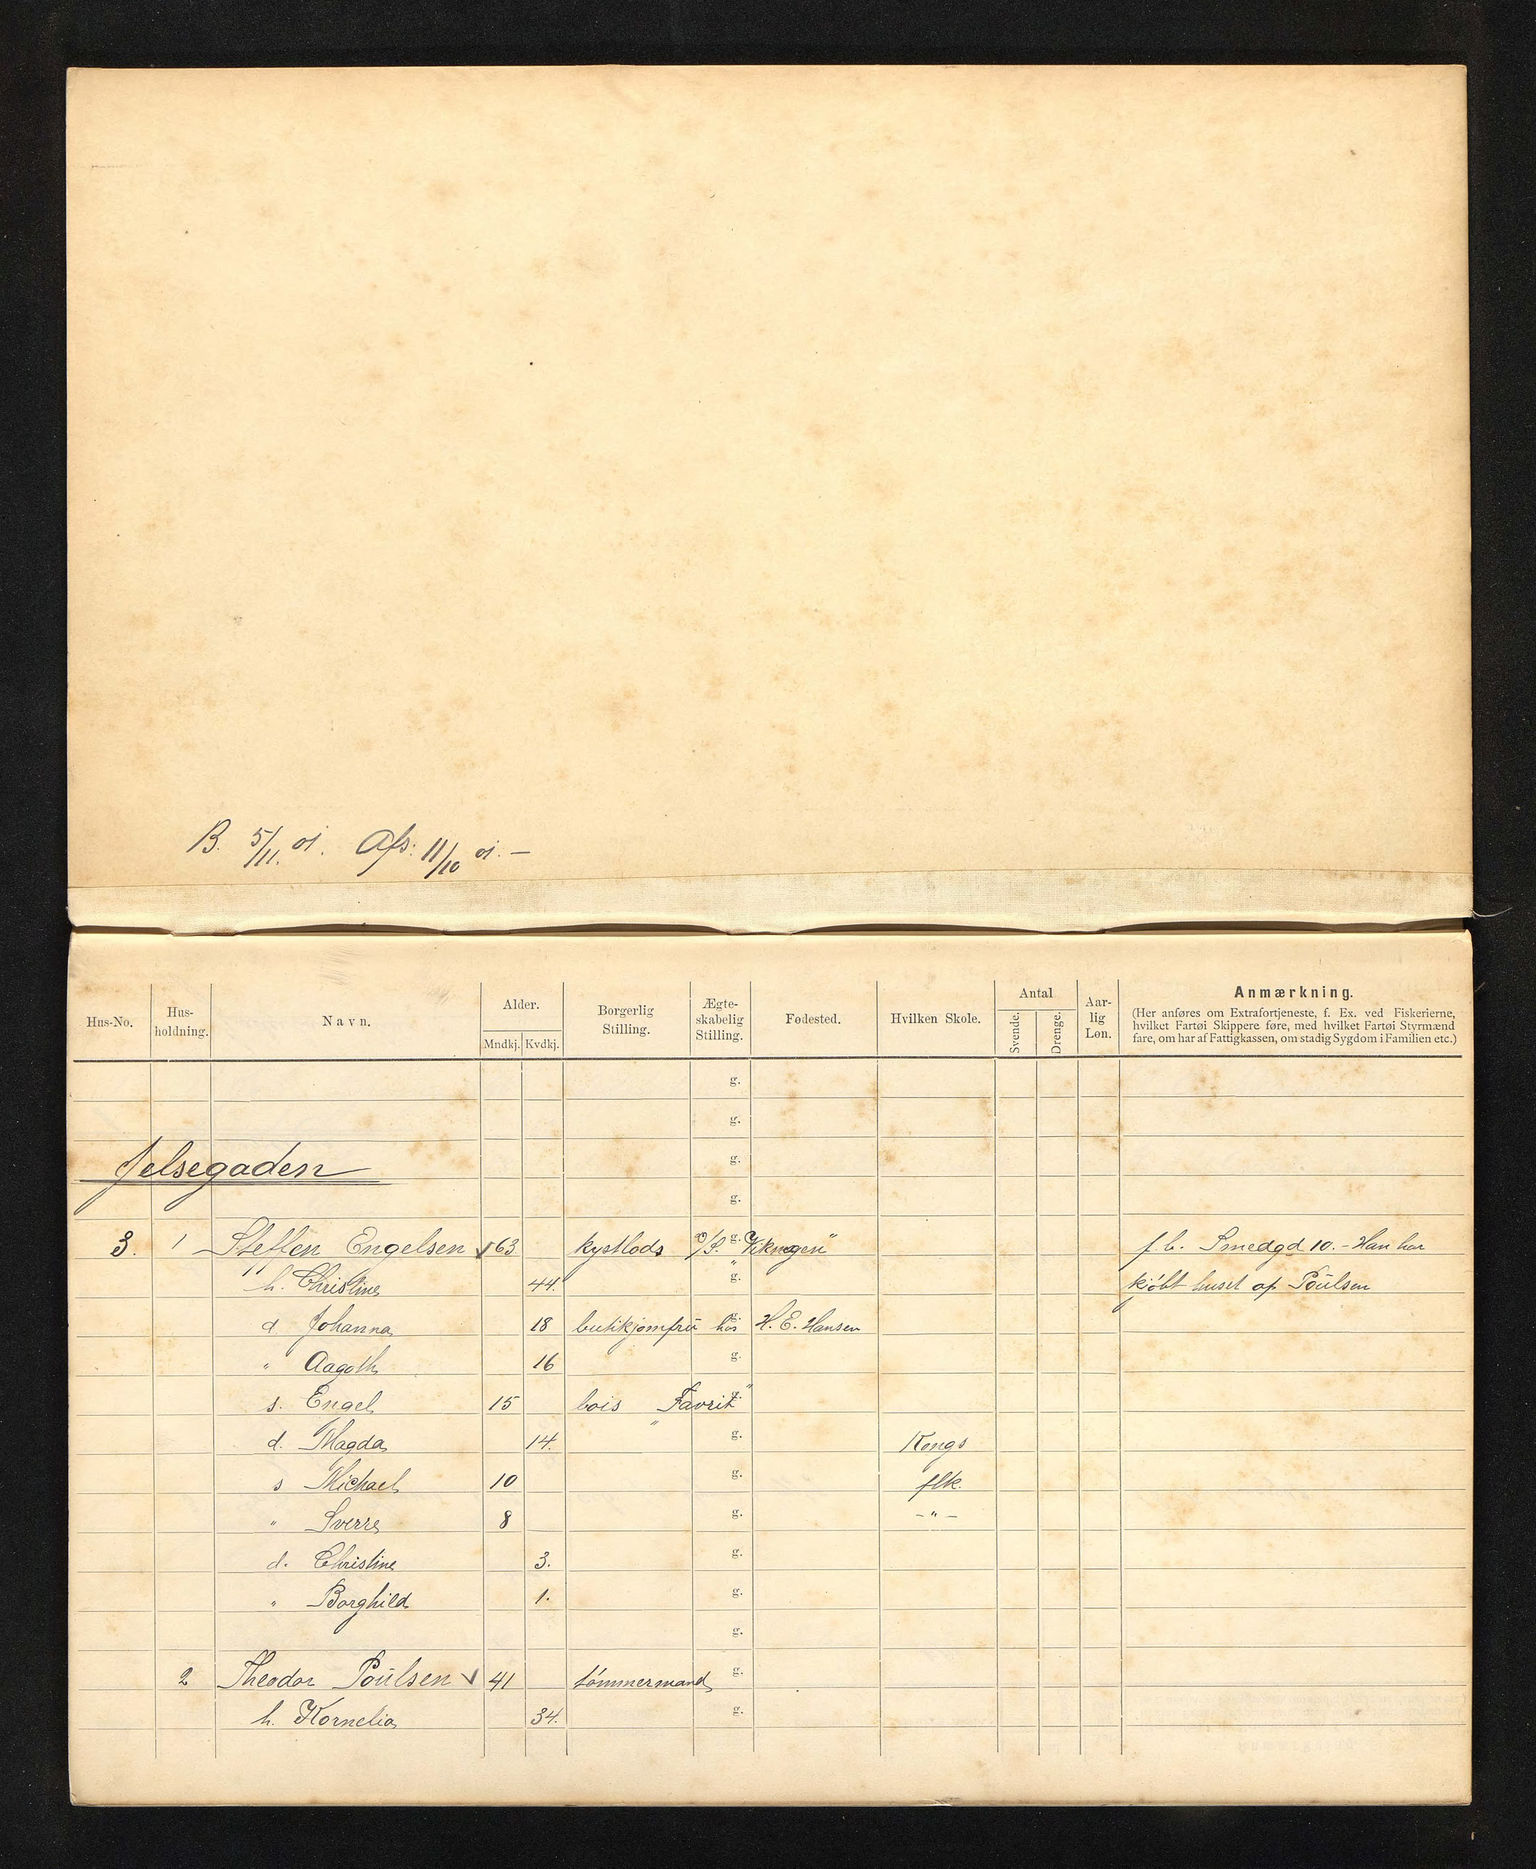 B. 5/11. 01. Afs: 11/10 01. —
Hus-No. Hus-holdning. Navn. Alder. Mndkj. Kvdkj. Borgerlig Stilling. Ægte-skabelig Stilling. Fødested. Hvilken Skole. Antal Svende. Drenge. Aar-lig Løn. Anmærkning.
(Her anføres om Extrafortjeneste, f. Ex. ved Fiskerierne,
hvilket Fartøi Skippere føre, med hvilket Fartøi Styrmænd
fare, om har af Fattigkassen, om stadig Sygdom i Familien etc.)
g.
g.
Jelsegaden g.
g.
3. 1 Steffen Engelsen √ 63 kystlods o/S. g. "Vikingen" f. b. Smedgd 10. - Han har
h. Christine 44. g. kjøbt huset af Poulsen
d Johanna 18 butikjomfru hos g. H. E. Hansen
" Aagoth 16 g.
s. Engel 15 bois "Favrit" g.
d. Magda 14. g. Kongs
s Michael 10 g. flk.
" Sverre 8 g. - " -
d. Christine 3. g.
" Borghild 1. g.
g.
2 Theodor Poulsen √ 41 tømmermand g.
h. Kornelia 34. g.